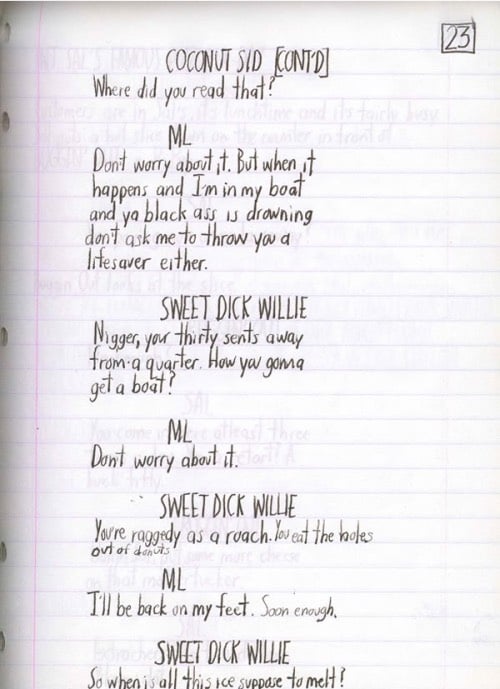 23
COCONUT SID [CONT'D]
Where did you read that?
ML
Don't worry about it. But when it
happens and I'm in my boat
and ya black ass is drowning
don't ask me to throw you a
lifesaver either.
SWEET DICK WILLIE
Nigger, your thirty sents away
from a quarter. How you gonna
get a boat?
ML
Don't worry about it.
SWEET DICK WILLIE
You're raggedy as a roach. You eat the holes
out of donuts
ML
I'll be back on my feet. Soon enough.
SWEET DICK WILLIE
So when is all this ice suppose to melt?